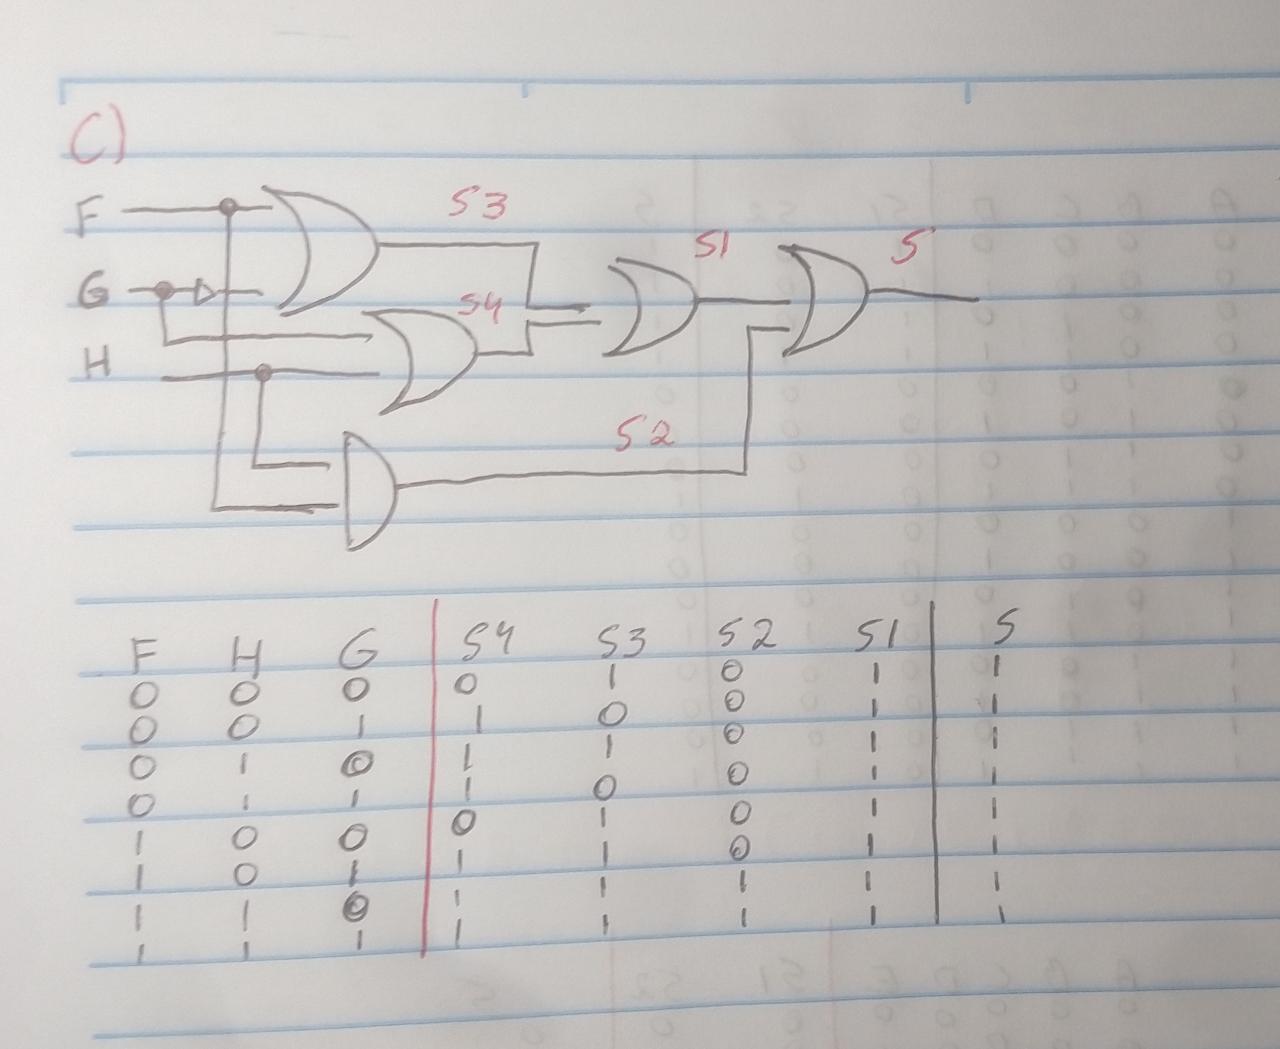 C)
F
S3
G
S4
S1
S
H
S2
F H G S4 S3 S2 S1 S
0 0 0 0 1 0 1 1
0 0 1 1 0 0 1 1
0 1 0 1 1 0 1 1
0 1 1 1 0 0 1 1
1 0 0 0 1 0 1 1
1 0 1 1 1 0 1 1
1 1 0 1 1 1 1 1
1 1 1 1 1 1 1 1